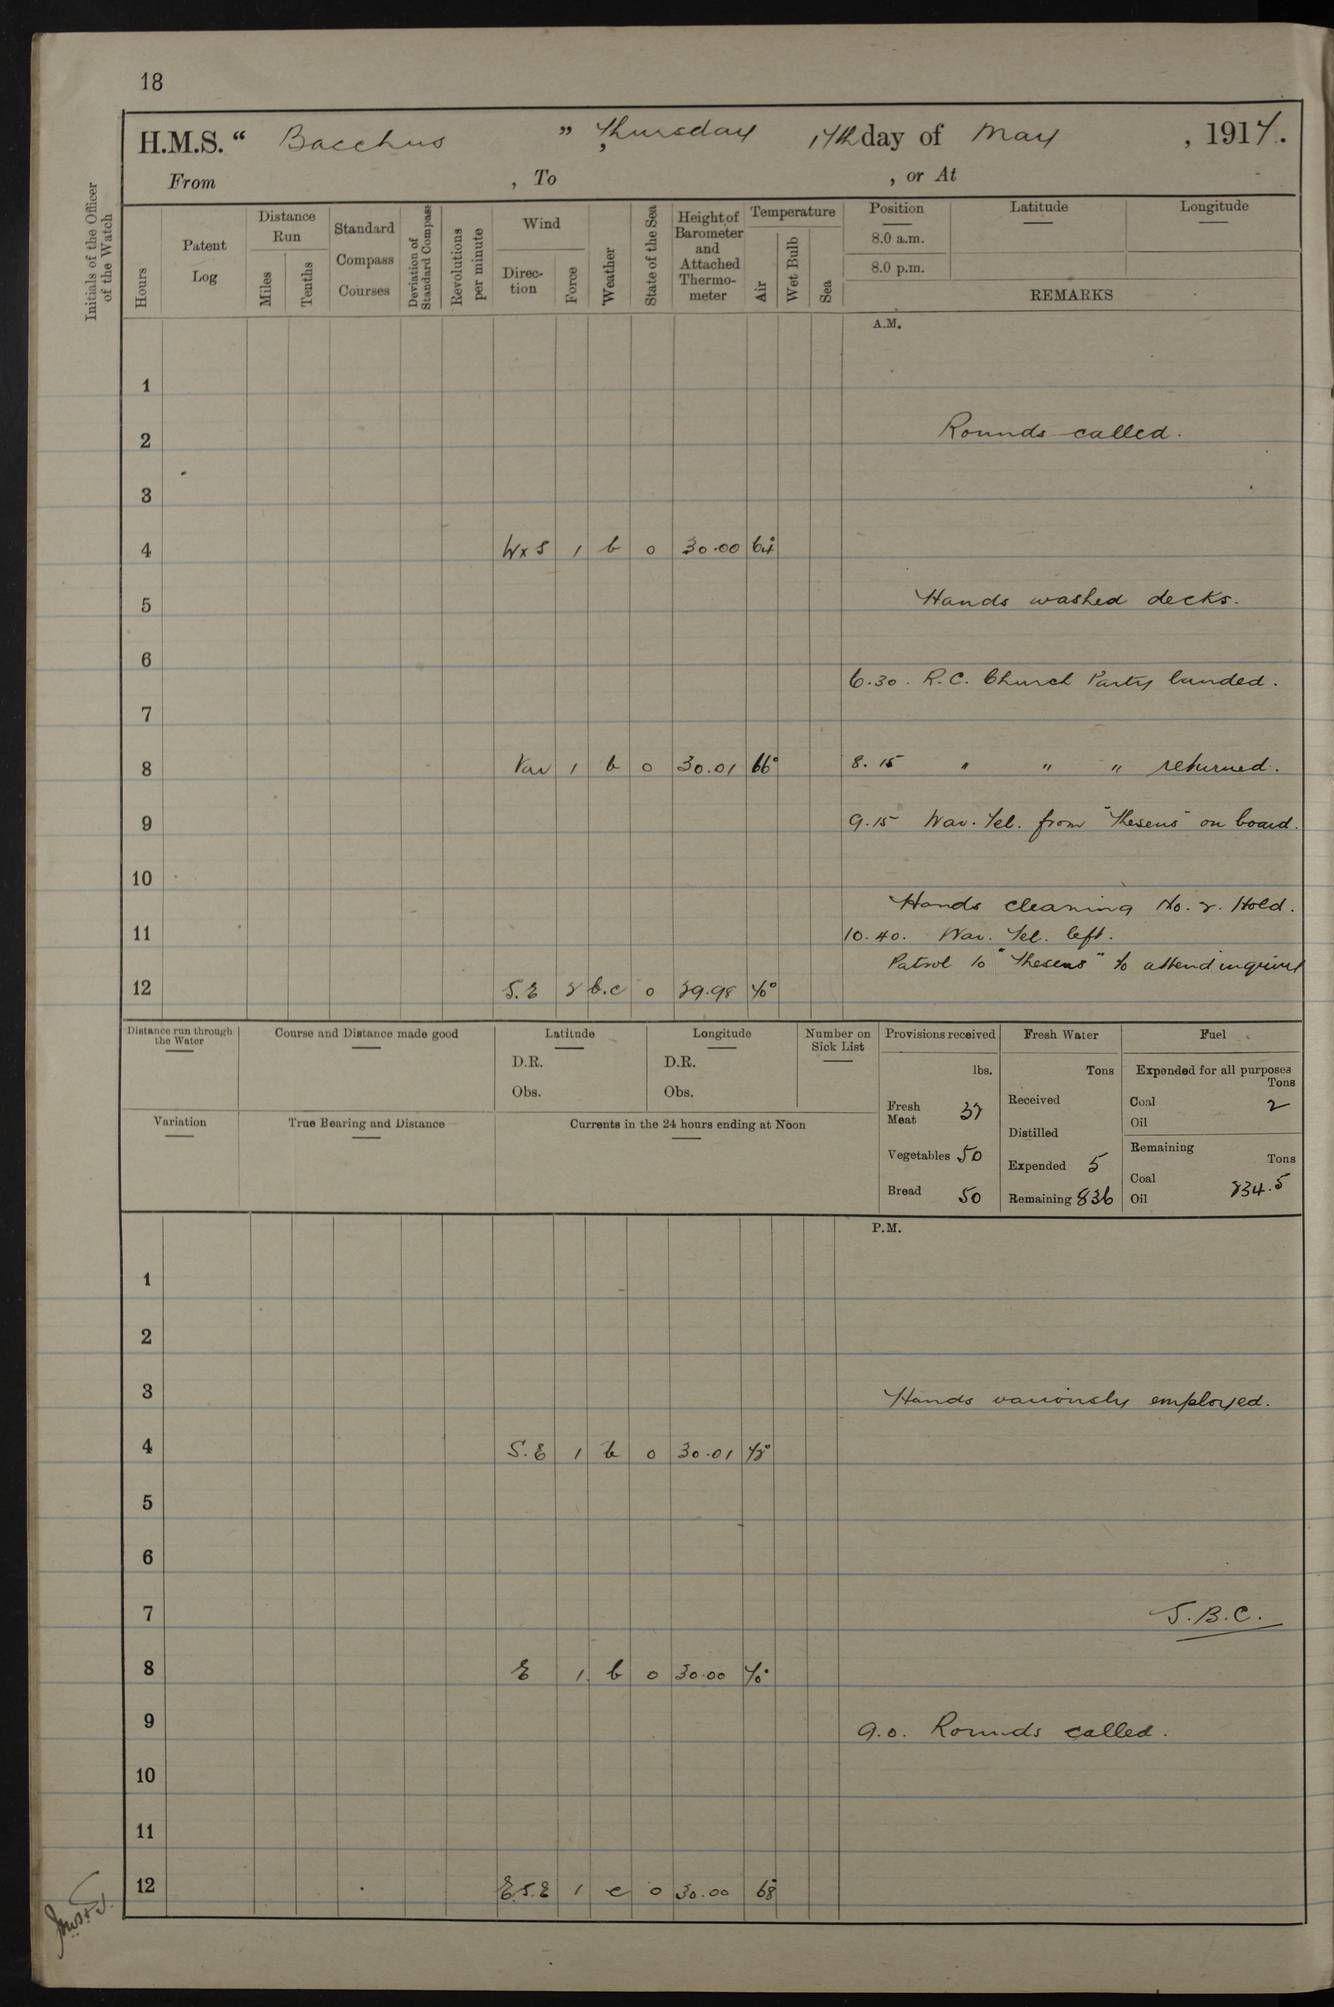 18
H.M.S. “ Bacchus ”, Thursday 17th day of May, 1917.
From , To , or At
Initials of the Officer of the Watch
Hours
Patent Log
Distance Run
Miles
Tenths
Standard Compass Courses
Deviation of Standard Compass
Revolutions per minute
Wind
Direction
Force
Weather
State of the Sea
Height of Barometer and Attached Thermometer
Temperature
Air
Wet Bulb
Sea
Position
8.0 a.m.
8.0 p.m.
Latitude
Longitude
REMARKS
A.M.
1
2 Rounds called.
3
4 W x S 1 b 0 30.00 64°
5 Hands washed decks.
6
6.30. R.C. Church Party landed.
7
8 Var 1 b 0 30.01 66° 8.15 " " " returned.
9 9.15 Nav. Tel. from "Theseus" on board.
10
Hands cleaning No. 2. Hold.
11 10.40. Nav. Tel. left.
Patrol to "Theseus" to attend inquiry
12 S.E 2 b.c 0 29.98 70°
Distance run through the Water
Course and Distance made good
Latitude
D.R.
Obs.
Longitude
D.R.
Obs.
Number on Sick List
Provisions received
lbs.
Fresh Meat 37
Vegetables 50
Bread 50
Fresh Water
Tons
Received
Distilled
Expended 5
Remaining 836
Fuel
Expended for all purposes
Tons
Coal 2
Oil
Remaining
Tons
Coal 234.5
Oil
Variation
True Bearing and Distance
Currents in the 24 hours ending at Noon
P.M.
1
2
3 Hands variously employed.
4 S.E 1 b 0 30.01 72°
5
6
7 J.B.C.
8 E 1 b 0 30.00 70°
9 9.0. Rounds called.
10
11
12 E.S.E 1 c 0 30.00 68°